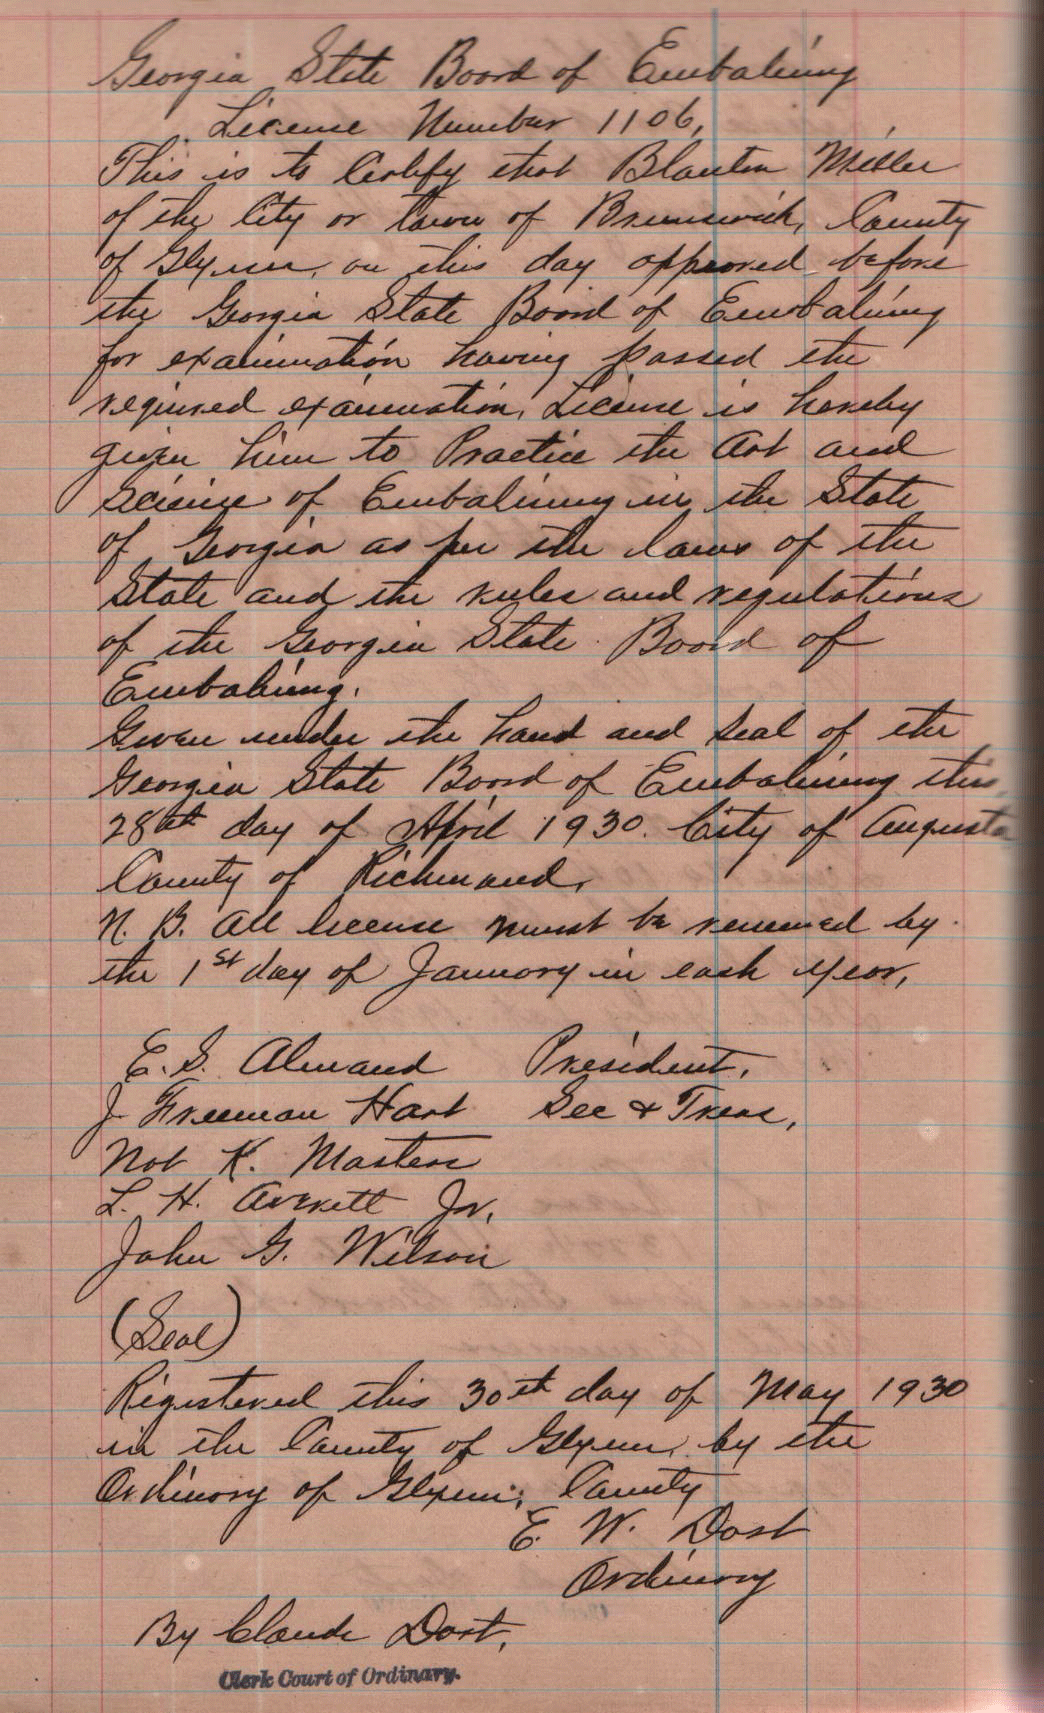 Georgia State Board of Embalming
License Number 1106.
This is to Certify that Blanton Miller
of the City or town of Brunswick, County
of Glynn, on this day appeared before
the Georgia State Board of Embalming
for examination having passed the
required examination, License is hereby
given him to Practice the Art and
Science of Embalming in the State
of Georgia as per the laws of the
State and the rules and regulations
of the Georgia State Board of
Embalming.
Given under the hand and seal of the
Georgia State Board of Embalming this
28th day of April 1930. City of Augusta
County of Richmond.
N. B. All license must be renewed by
the 1st day of January in each year,
E. S. Almand President.
J Freeman Hart Sec & Treas,
Nat K. Masters
L. H. Averett Jr.
John G. Wilson
(Seal)
Registered this 30th day of May 1930
in the County of Glynn, by the
Ordinary of Glynn, County
E. W. Dart
Ordinary
By Claude Dart,
Clerk Court of Ordinary.